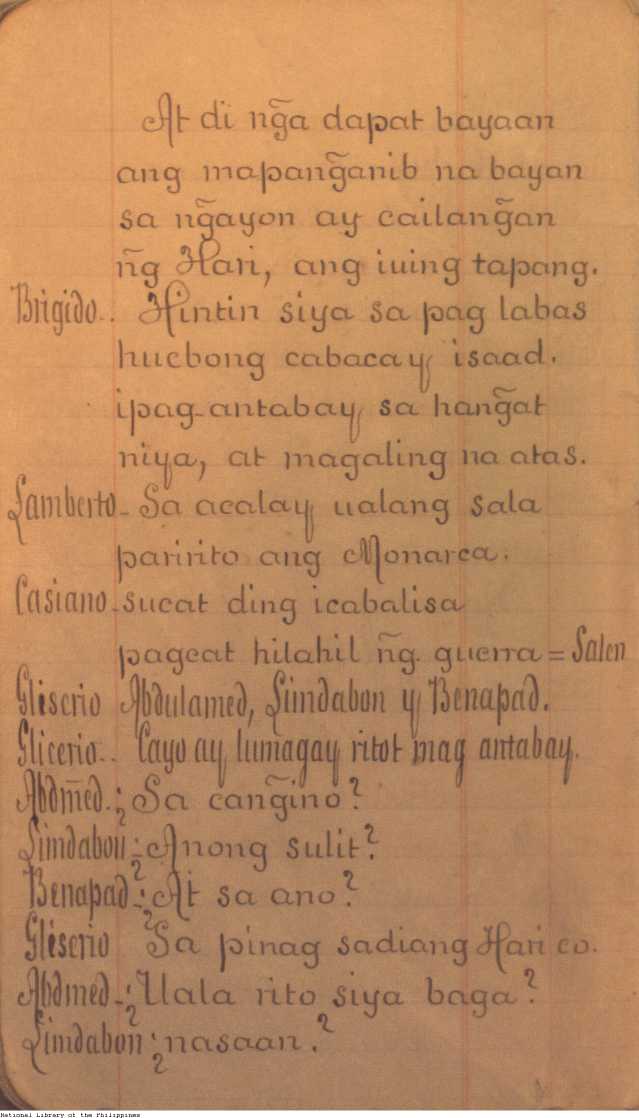 At di ng̃a dapat bayaan
ang mapang̃anib na bayan
sa ng̃ayon ay cailang̃an
ng̃ Hari, ang iuing tapang.
Brigido.. Hintin siya sa pag labas
hucbong cabacay, isaad.
ipag-antabay, sa hang̃at
niya, at magaling na atas.
Lamberto- Sa acalay ualang sala
paririto ang Monarca.
Casiano-sucat ding icabalisa
pagcat hilahil ng̃ guerra = Salen
Gliserio Abdulamed, Limdabon y Benapad.
Glicerio.. Cayo ay lumagay ritot mag antabay.
Abdmed.¿ Sa cang̃ino?
Limdabon ¿Anong sulit?
Benapad-¿At sa ano?
Gliserio Sa pinag sadiang Hari co.
Abdmed-¿Uala rito siya baga?
Limdabon ¿nasaan.?
National Library of the Philippines